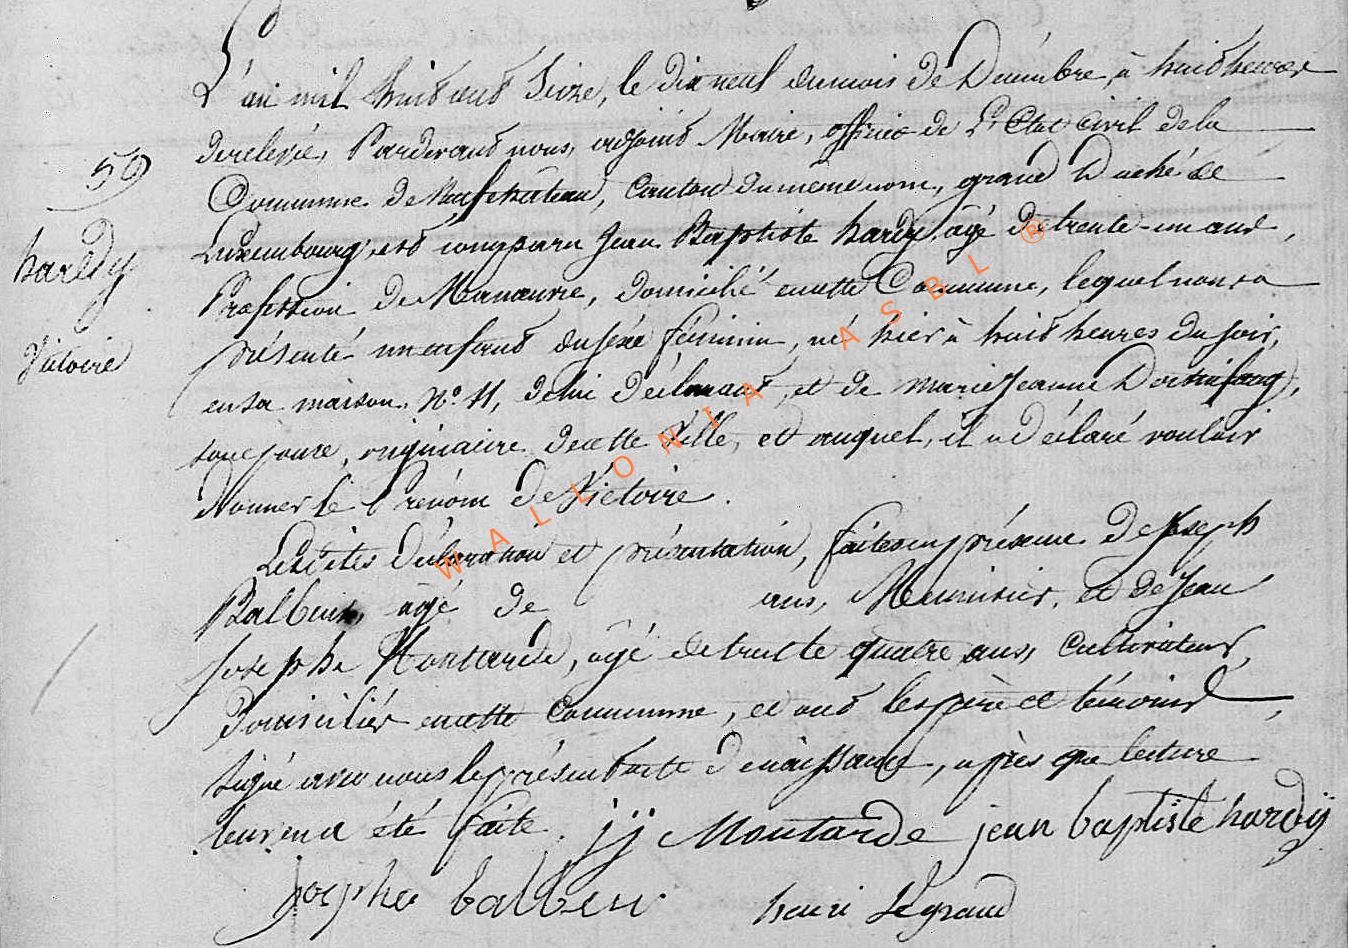 L'an mil huit cent seize, le dix neuf du mois de Décembre, à huit heures
de relevée, Pardevant nous, adjoint Maire, officier de L'Etat civil de la
59
Commune de Neufchâteau, Canton du même nom, grand Duché de
hardy
Luxembourg, est comparu Jean Baptiste hardy, âgé de trente-un ans,
Profession de Manoeuvre, domicilié en cette Commune, lequel nous a
Victoire
présenté un enfant du sexe féminin, né hier à huit heures du soir,
en sa maison N° 11, de lui Déclarant, et de marie Jeanne
son épouse, originaire de cette Ville, et auquel, il a déclaré vouloir
Donner le Prénom de Victoire.
Lesdites Déclaration et présentation, faites en présence de Joseph
Balbeur, âgé de ans, Menuisier, et de Jean
Joseph Moutarde, âgé de trente quatre ans, Cultivateur,
Domiciliés en cette Commune, et ont les père et témoins,
signé avec nous le présent acte de naissance, après que lecture
leur en a été faite. jj Moutarde jean baptiste hardÿ
Josephe balbeur henri Legrand
WALLONIA ASBL ®